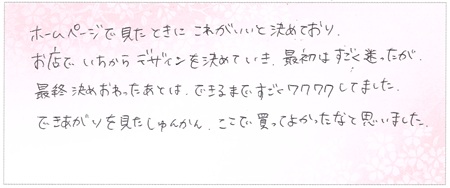 ホームページで見たときに これがいいと決めており、
お店で いちから デザインを決めていき、最初はすごく迷ったが、
最終決めおわったあとは、できるまですごくワクワクしてました。
できあがりを見たしゅんかん、ここで買ってよかったなと思いました。